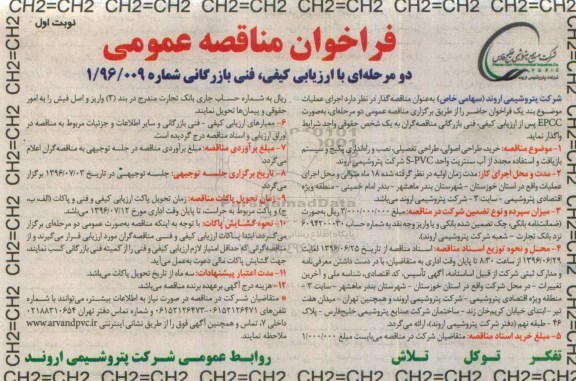 CH2=CH2 CH2=CH2 CH2=CH2 CH2=CH2 CH2=CH2 CH2=CH2 CH2=CH2
نوبت اول
فراخوان مناقصه عمومی
دو مرحله‌ای با ارزیابی کیفی، فنی بازرگانی شماره ۱/۹۶/۰۰۹
شرکت پتروشیمی اروند (سهامی خاص) به‌عنوان مناقصه‌گذار در نظر دارد اجرای عملیات
موضوع بند یک فراخوان حاضر را از طریق برگزاری مناقصه عمومی دو مرحله‌ای، به‌صورت
EPCC پس از ارزیابی کیفی، فنی بازرگانی مناقصه‌گران به یک شخص حقوقی واجد شرایط
واگذار نماید.
۱- موضوع مناقصه: خرید، طراحی اصولی، طراحی تفصیلی، نصب و راه‌اندازی پکیج و سیستم
بازیافت و استفاده مجدد از آب سنتریت واحد S-PVC شرکت پتروشیمی اروند.
۲- مدت و محل اجرای کار: مدت زمان اولیه در نظر گرفته شده ۱۸ ماه شمسی و محل اجرای
عملیات واقع در استان خوزستان - شهرستان بندر ماهشهر - بندر امام خمینی - منطقه ویژه
اقتصادی پتروشیمی - سایت ۳ - شرکت پتروشیمی اروند می‌باشد.
۳- میزان سپرده و نوع تضمین شرکت در مناقصه: مبلغ ۳/۰۰۰/۰۰۰/۰۰۰ ریال به‌صورت
(ضمانتنامه بانکی، چک تضمین شده بانکی یا واریز وجه نقد به شماره حساب
نزد بانک تجارت - شعبه مرکزی) به نام شرکت پتروشیمی اروند.
۴- محل و نحوه توزیع اسناد مناقصه: اسناد مناقصه از تاریخ ۱۳۹۶/۰۶/۲۵ لغایت
۱۳۹۶/۰۶/۲۹ از ساعت ۸:۳۰ تا پایان وقت اداری به متقاضیان، با در دست داشتن معرفی‌نامه
و مدارک ثبتی شرکت از قبیل اساسنامه، آگهی تأسیس، کد اقتصادی، شناسه ملی و آخرین
تغییرات - در محل سایت واقع در استان خوزستان - شهرستان بندر ماهشهر - سایت ۳ -
منطقه ویژه اقتصادی پتروشیمی - شرکت پتروشیمی اروند و همچنین تهران - میدان هفت
تیر - ابتدای خیابان کریم‌خان زند - ساختمان شرکت صنایع پتروشیمی خلیج‌فارس - پلاک
۴۶ - طبقه نهم (دفتر شرکت پتروشیمی اروند)، ارائه می‌گردد.
۵- مبلغ خرید اسناد مناقصه: متقاضیان شرکت در مناقصه می‌بایست مبلغ ۱/۰۰۰/۰۰۰
ریال به شماره حساب جاری بانک تجارت مندرج در بند (۳) واریز و اصل فیش را به امور
حقوقی و پیمان‌ها تحویل نمایند.
۶- معیارهای ارزیابی کیفی - فنی بازرگانی و سایر اطلاعات و جزئیات مربوط به مناقصه در
اوراق ارزیابی و اسناد مناقصه درج گردیده است.
۷- مبلغ برآوردی مناقصه: مبلغ برآوردی مناقصه در جلسه توجیهی به مناقصه‌گران اعلام
می‌گردد.
۸- تاریخ برگزاری جلسه توجیهی: جلسه توجیهی در تاریخ ۱۳۹۶/۰۷/۰۳ برگزار
می‌گردد.
۹- زمان تحویل پاکات مناقصه: زمان تحویل پاکات ارزیابی کیفی و فنی و پاکات (الف، ب،
ج) و پاکت مربوط به حراست، تا پایان وقت اداری مورخ ۱۳۹۶/۰۷/۱۲ می‌باشد.
۱۰- نحوه گشایش پاکات: با توجه به اینکه مناقصه به‌صورت عمومی دو مرحله‌ای برگزار
می‌گردد ابتدا پاکات ارزیابی کیفی و فنی مناقصه‌گران مورد ارزیابی قرار می‌گیرند و از
مناقصه‌گرانی که حداقل امتیاز لازم ارزیابی کیفی و فنی را از کمیته فنی بازرگانی کسب نمایند،
جهت گشایش پاکات مالی دعوت به‌عمل می‌آید.
۱۱- مدت اعتبار پیشنهادات: سه ماه از تاریخ تحویل پاکات می‌باشد.
۱۲- هزینه درج آگهی برعهده برنده مناقصه می‌باشد.
متقاضیان شرکت در مناقصه در صورت نیاز به اطلاعات بیشتر، می‌توانند با شماره
تلفن‌های ۰۶۱۵۲۱۲۶۴۷۱-۰۶۱۵۲۱۲۶۴۷۳ و شماره تماس دفتر تهران ۰۲۱۸۸۳۱۰۶۰۴
داخلی ۷، تماس و همچنین آگهی فوق را از طریق نشانی اینترنتی www.arvandpvc.ir
ملاحظه نمایند.
تفکر توکل تلاش
روابط عمومی شرکت پتروشیمی اروند
CH2=CH2 CH2=CH2 CH2=CH2 CH2=CH2 CH2=CH2 CH2=CH2 CH2=CH2